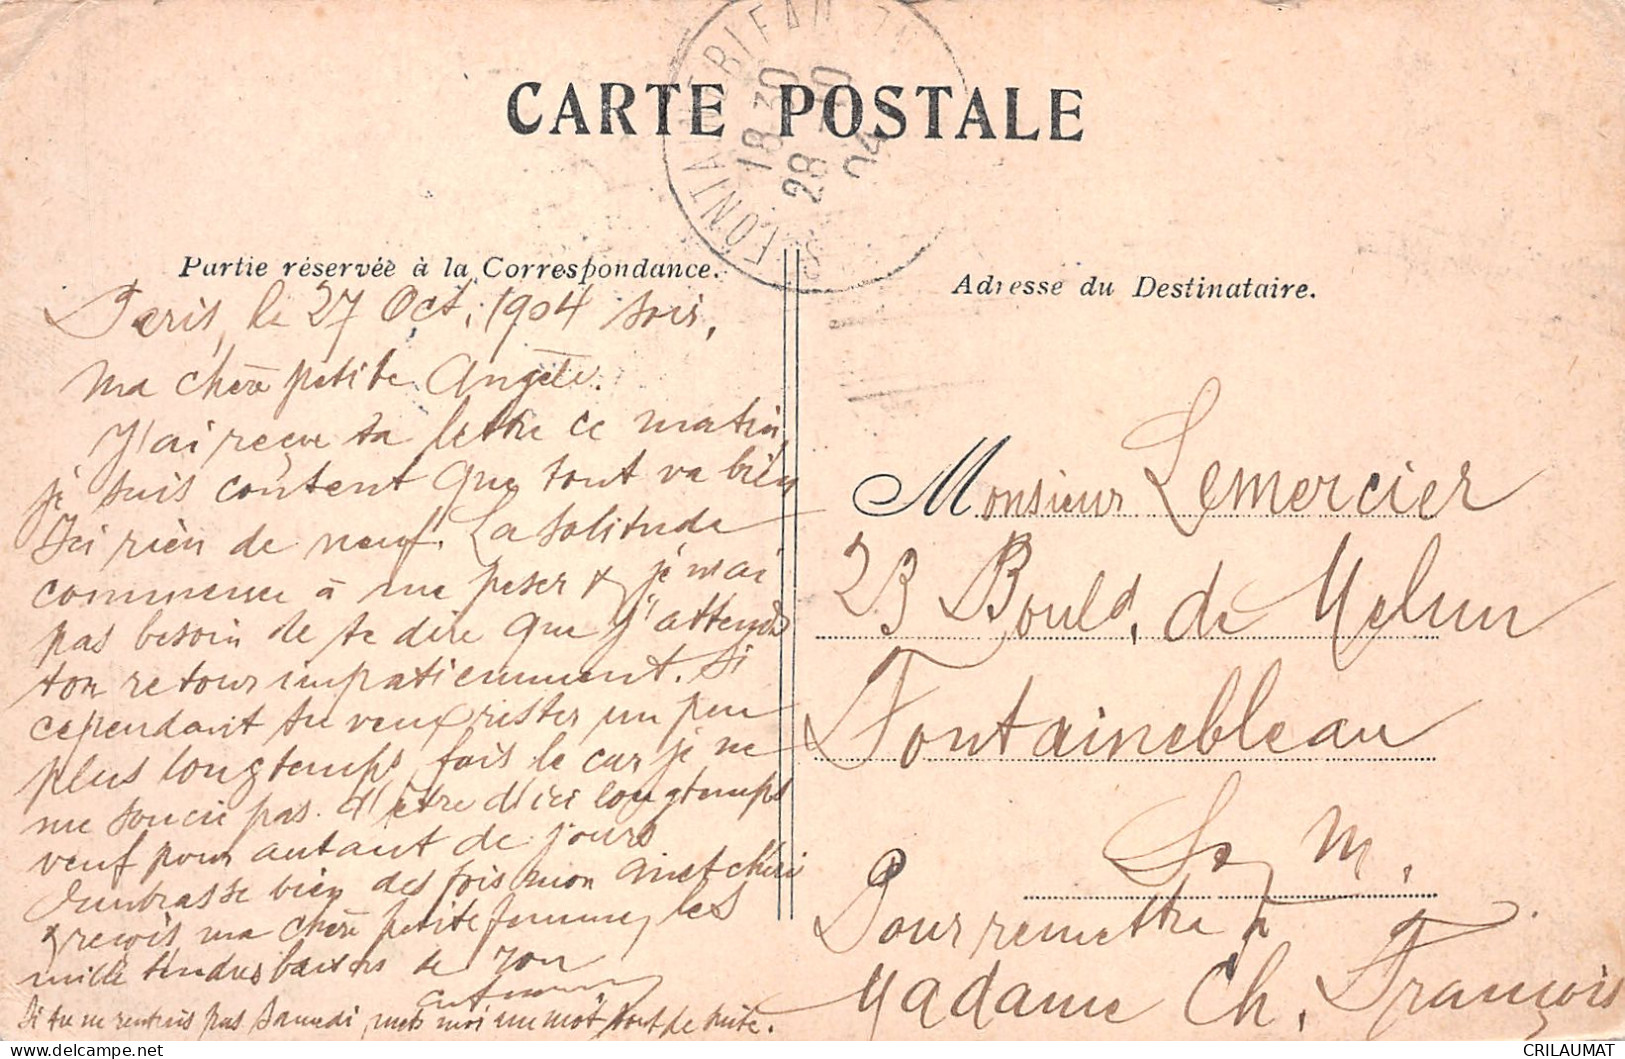 CARTE POSTALE
FONTAINEBLEAU
18 30
28 10
04
Partie réservée à la Correspondance.
Paris, le 27 Oct. 1904 soir,
Ma chère petite Angèle.
J'ai reçue ta lettre ce matin,
je suis content que tout va bien
Ici rien de neuf. La solitude
commence à me peser & je n'ai
pas besoin de te dire que j'attends
ton retour impatiemment. Si
cependant tu veux rester un peu
plus longtemps, fais le car je ne
me soucie pas d'être d'ici longtemps
veuf pour autant de jours
Embrasse bien des fois mon chéri
& reçois, ma chère petite femme, les
mille tendres baisers de ton
Si tu ne rentrais pas Samedi, mets moi un mot tout de suite.
Adresse du Destinataire.
Monsieur Lemercier
23 Bould. de Melun
Fontainebleau
S. & M.
Pour remettre à
Madame Ch. François
CRILAUMAT